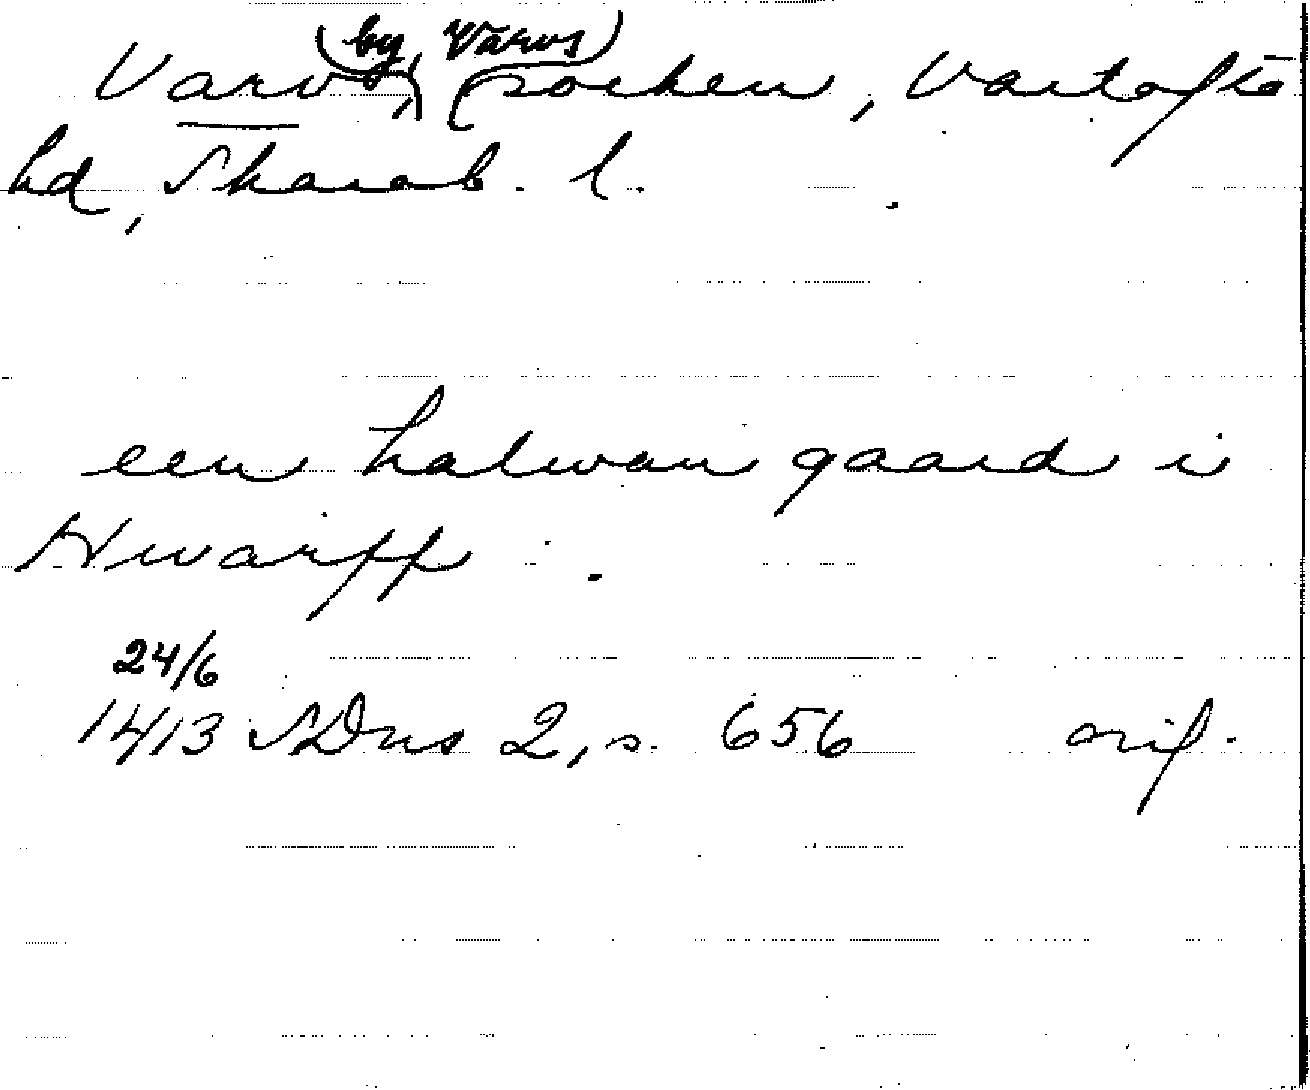 (by, Varvs)
Varvs, socken, Vartofta
hd, Skarab. l.
een halwan gaard i
Hwarff
24/6
1413 SDns 2, s. 656 orig.